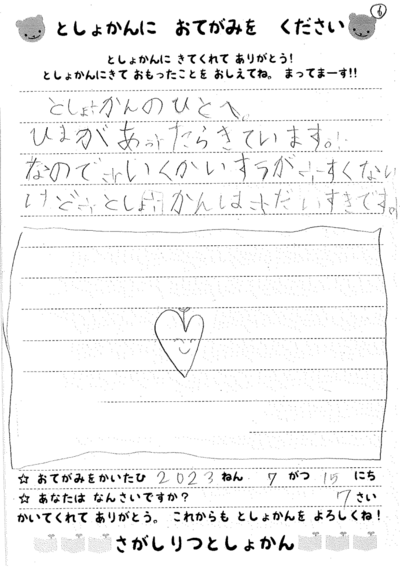 6
としょかんに おてがみを ください
としょかんに きてくれて ありがとう!
としょかんにきて おもったことを おしえてね。 まってまーす!!
としょかんのひとへ。
ひまがあったらきています。
なので いくかいすうが すくない
けど としょかんは だいすきです。
☆ おてがみをかいたひ 2023 ねん 7 がつ 15 にち
☆ あなたは なんさいですか? 7 さい
かいてくれて ありがとう。 これからも としょかんを よろしくね!
さがしりつとしょかん